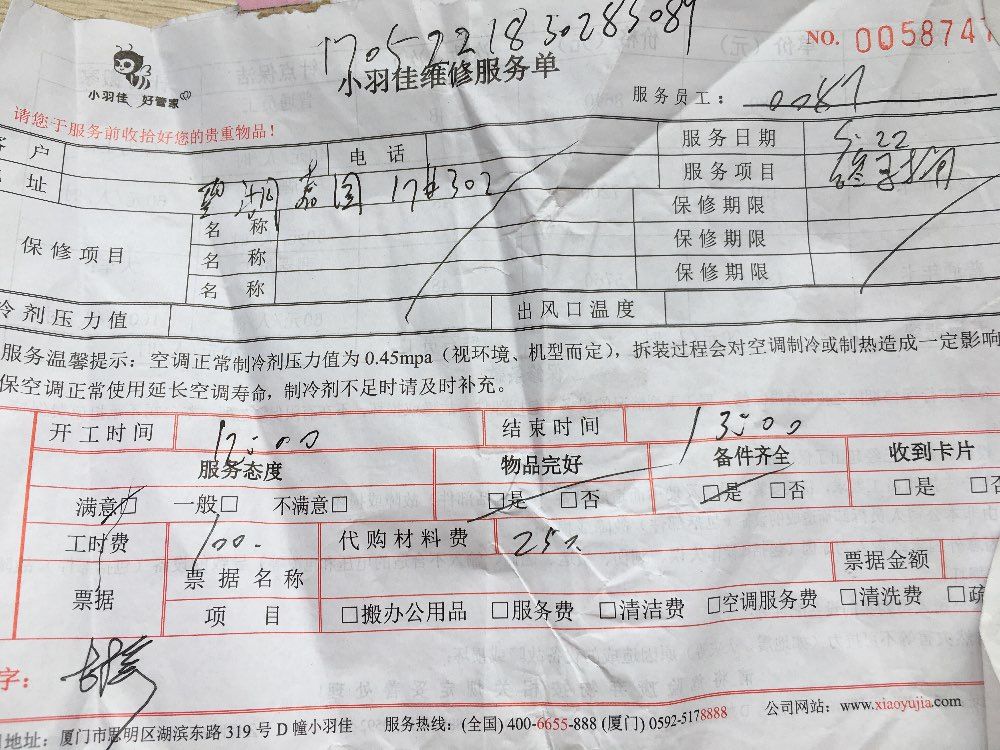 170522183028 3089
NO. 0058747
小羽佳 好管家
小羽佳维修服务单
服务员工： 0087
请您于服务前收拾好您的贵重物品！
户 电话 服务日期 5.22
址 嘉园 17#302 服务项目
保修项目 名称 保修期限
名称 保修期限
名称 保修期限
冷剂压力值 出风口温度
服务温馨提示：空调正常制冷剂压力值为 0.45mpa（视环境、机型而定），拆装过程会对空调制冷或制热造成一定影响
保空调正常使用延长空调寿命，制冷剂不足时请及时补充。
开工时间 12:00 结束时间 13:00
服务态度 物品完好 备件齐全 收到卡片
满意□ 一般□ 不满意□ □是 □否 □是 □否 □是 □否
工时费 100.- 代购材料费
票据 票据名称 票据金额
项目 □搬办公用品 □服务费 □清洁费 □空调服务费 □清洗费 □疏
字：
地址：厦门市思明区湖滨东路 319 号 D 幢小羽佳 服务热线：(全国) 400-6655-888 (厦门) 0592-5178888 公司网站：www.xiaoyujia.com